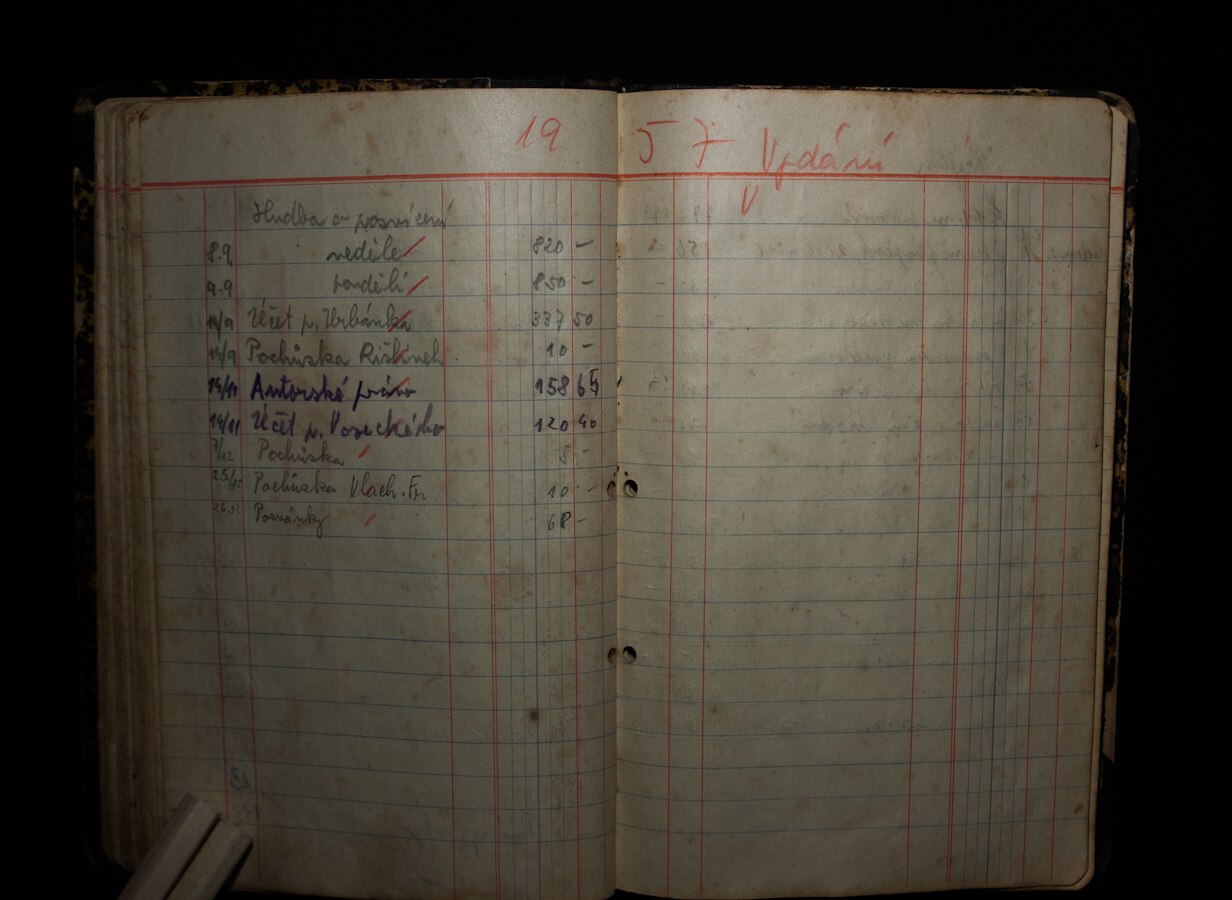 19 57 Vydání
Hudba a posvícení
8.9. neděle 820 —
9.9 pondělí 850 —
14/9 Účet p. Urbánka 337 50
14/9 Pochůzka 10 —
14/11 Autorské právo 158 65
14/11 Účet p. 120 40
7/12 Pochůzka 5 -
25/12 Pochůzka Vlach. Fr. 10 —
26.12 Pozvánky 68 —